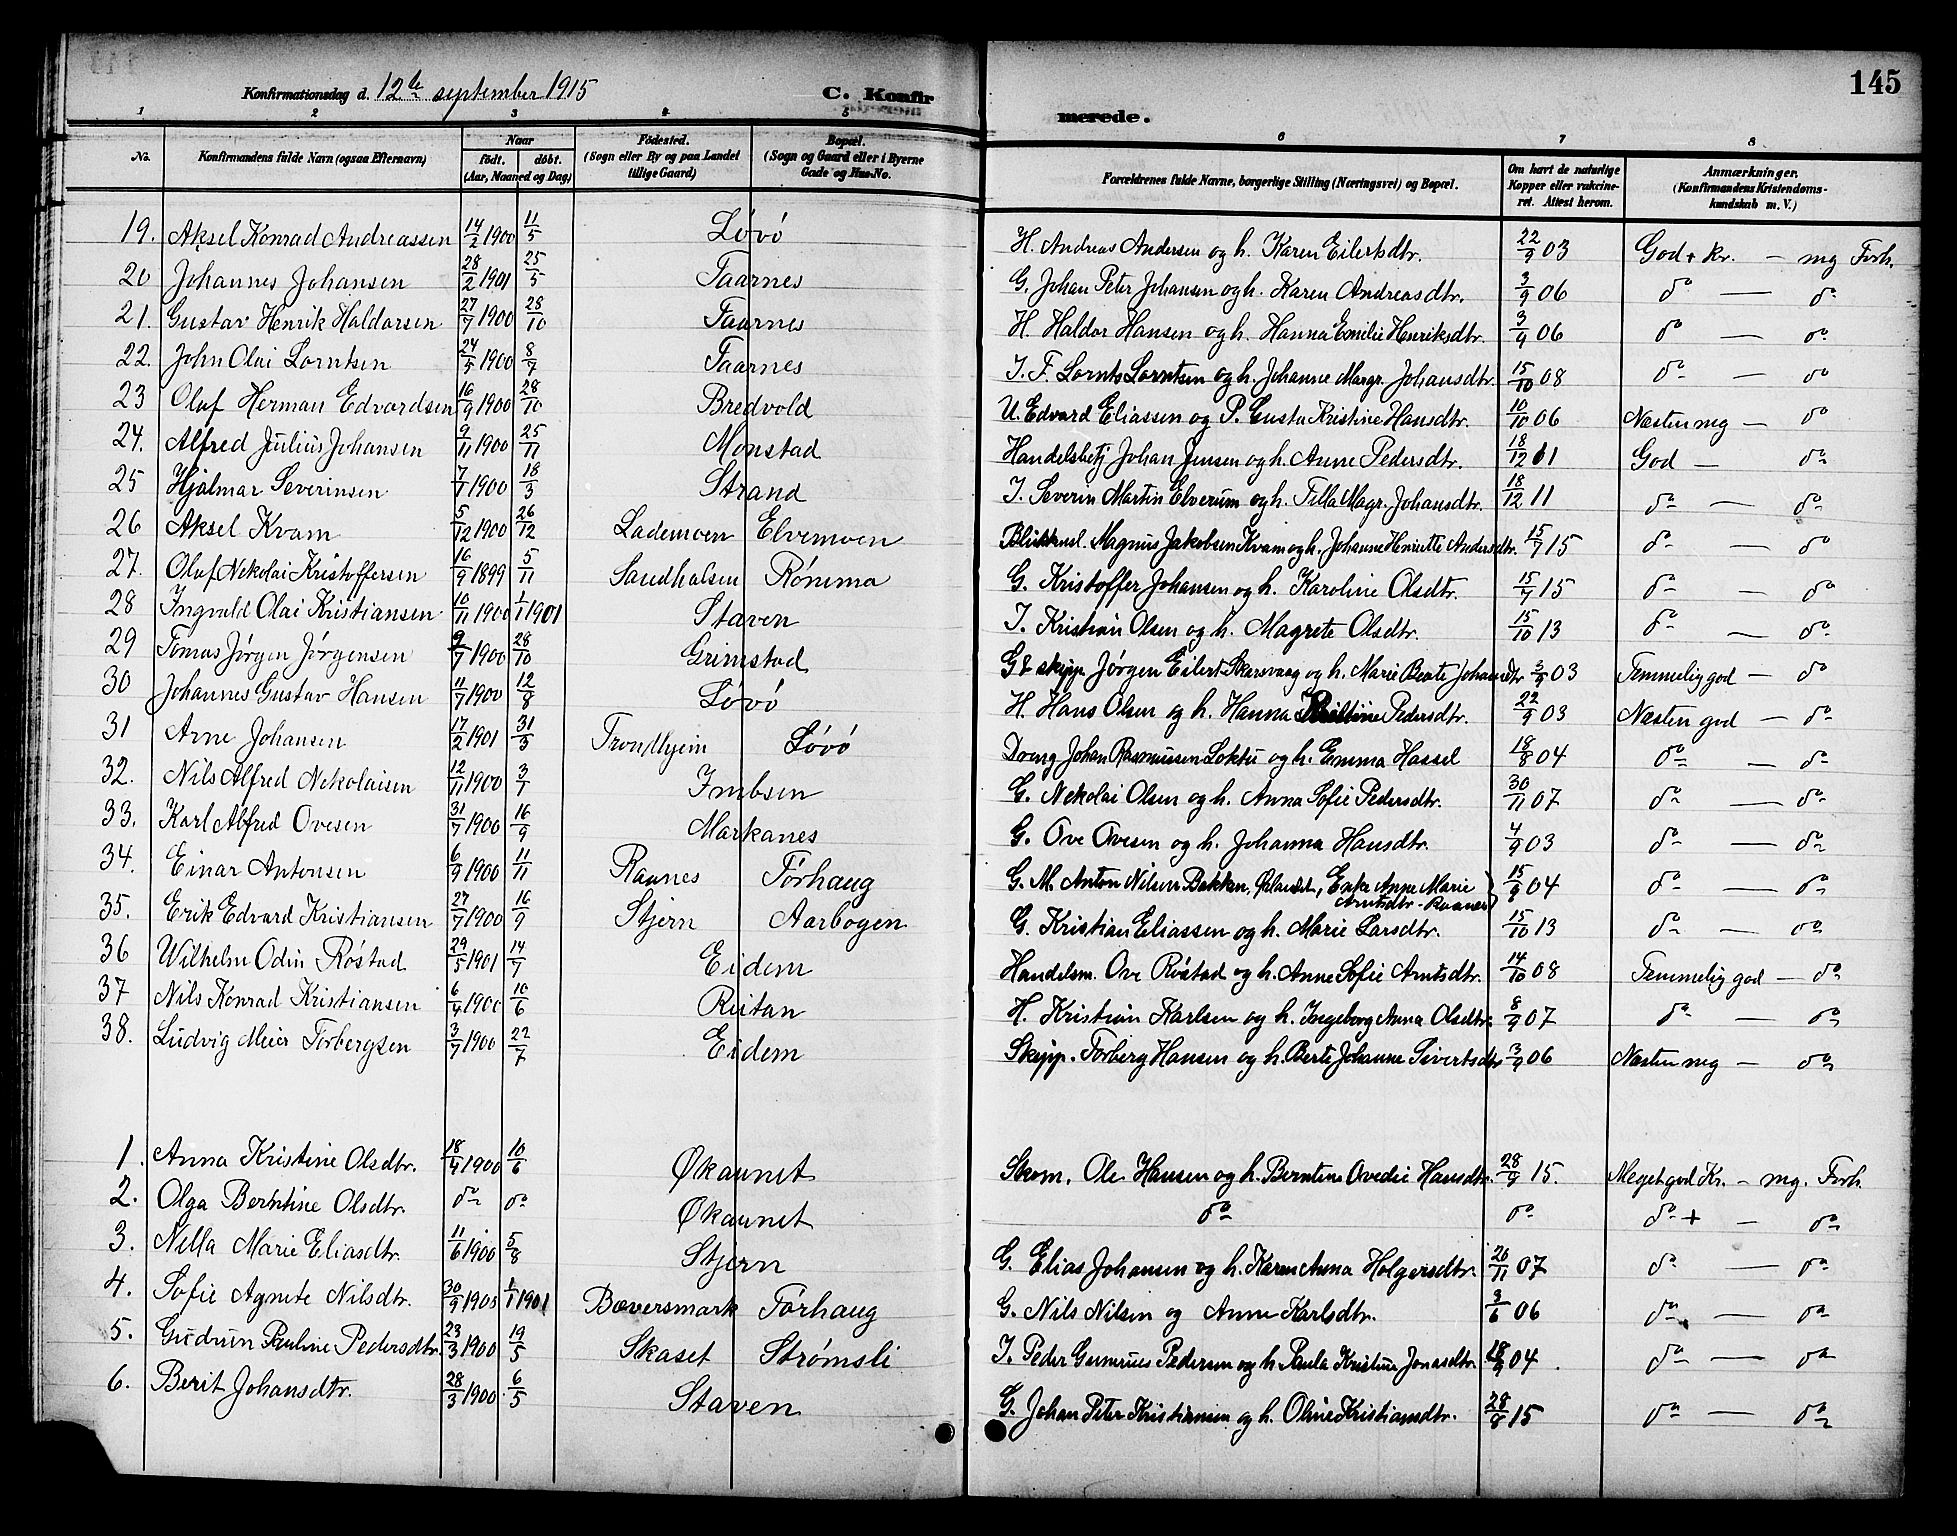 145
Konfirmationsdag d. 12te september 1915
C. Konfirmerede.
1 2 3 4 5 6 7 8
No. Konfirmandens fulde Navn (ogsaa Efternavn) Naar født. døbt. (Aar, Maaned og Dag) Fødested. (Sogn eller By og paa Landet tillige Gaard) Bopæl. (Sogn og Gaard eller i Byerne Gade og Hus-No. Forældrenes fulde Navne, borgerlige Stilling (Næringsvei) og Bopæl. Om havt de naturlige Kopper eller vakcineret. Attest herom. Anmærkninger. (Konfirmandens Kristendomskundskab m. V.)
19. Aksel Konrad Andreassen 14/2 1900 11/5 Løvø H. Andreas Andersen og h. Karen Eilertsdtr. 22/9 03 God + Kr. — mg Forh.
20 Johannes Johansen 28/2 1901 25/5 Taarnes G. Johan Peter Johansen og h. Karen Andreasdtr. 3/9 06 do — do
21. Gustav Henrik Haldorsen 27/7 1900 28/10 Taarnes H. Haldor Hansen og h. Hanna Emilie Henriksdtr. 3/9 06 do — do
22. John Olai Lorntsen 24/5 1900 8/7 Taarnes I. F. Lornts Lorntsen og h. Johanne Margr. Johansdtr. 15/10 08 do — do
23 Oluf Herman Edvardsen 16/9 1900 28/10 Bredvold U. Edvard Eliassen og P. Gusta Kristine Hansdtr. 10/10 06 Næsten mg — do
24. Alfred Julius Johansen 9/11 1900 25/11 Monstad Handelsbetj Johan Jensen og h. Anne Pedersdtr. 18/12 01 God — do
25 Hjalmar Severinsen 7/7 1900 18/3 Strand I. Severin Martin Elverum og h. Tilla Magr. Johansdtr. 18/12 11 do — do
26 Aksel Kvam 5/12 1900 26/12 Lademoen Elvemoen Magnus Jakobsen Kvam og h. Johanne Henriette Andersdtr. 15/7 15 do — do
27. Oluf Nekolai Kristoffersen 16/9 1899 5/11 Sandhalsen Rømma G. Kristoffer Johansen og h. Karoline Olsdtr. 15/7 15 do — do
28 Ingvald Olai Kristiansen 10/11 1900 1/1 1901 Staven I. Kristian Olsen og h. Magrete Olsdtr. 15/10 13 do — do
29 Tomas Jørgen Jørgensen 9/7 1900 28/10 Grimstad G & skipp. Jørgen Eilert Skarsvaag og h. Marie Beate Johansdtr 3/9 03 Temmelig god — do
30 Johannes Gustav Hansen 11/7 1900 12/8 Løvø H. Hans Olsen og h. Hanna Pedersdtr. 22/9 03 Næsten god — do
31 Arne Johansen 17/2 1901 31/3 Trondhjem Løvø Dreng Johan Rasmussen Loktu og h. Emma Hassel 18/8 04 do — do
32. Nils Alfred Nekolaisen 12/11 1900 3/1 Imbsen G. Nekolai Olsen og h. Anna Sofie Pedersdtr. 30/11 07 do — do
33. Karl Alfred Ovesen 31/7 1900 16/9 Markanes G. Ove Ovesen og h. Johanna Hansdtr. 4/9 03 do — do
34. Einar Antonsen 6/9 1900 11/11 Raanes Tørhaug G. M. Anton Nilsen Bakken, Enke Anne Marie Arntsdtr. Raanes 15/9 04 do — do
35. Erik Edvard Kristiansen 27/7 1900 16/9 Stjern Aarbogen G. Kristian Eliassen og h. Marie Larsdtr. 15/10 13 do — do
36 Wilhelm Odin Røstad 29/5 1901 14/7 Eidem Handelsm. Ove Røstad og h. Anne Sofie Arntsdtr. 14/10 08 Temmelig god — do
37 Nils Konrad Kristiansen 6/4 1900 10/6 Ruitan H. Kristian Karlsen og h. Ingeborg Anna Olsdtr. 8/9 07 do — do
38. Ludvig Meier Torbergsen 3/7 1900 22/7 Eidem Skipp. Torberg Hansen og h. Berte Johanne Sivertsdtr 3/9 06 Næsten mg — do
1. Anna Kristine Olsdtr. 18/4 1900 10/6 Økaunet Skom. Ole Hansen og h. Berntine Ovedie Hansdtr. 28/9 15. Meget god Kr. — mg. Forh.
2. Olga Berntine Olsdtr. do do Økaunet do do do + — do
3. Nilla Marie Eliasdtr. 11/6 1900 5/8 Stjern G. Elias Johansen og h. Karen Anna Holgersdtr. 26/11 07 do — do
4. Sofie Agnete Nilsdtr. 30/9 1900 1/1 1901 Bæversmark Tørhaug G. Nils Nilsen og Anne Karlsdtr. 3/6 06 do — do
5. Gudrun Pauline Pedersdtr. 23/3 1900 19/5 Skaset Strømsli I. Peder Gunerius Pedersen og h. Paula Kristine Jonasdtr. 18/9 04. do — do
6. Berit Johansdtr. 28/3 1900. 6/5 Staven G. Johan Peter Kristiansen og h. Oline Kristiansdtr. 28/8 15 do — do